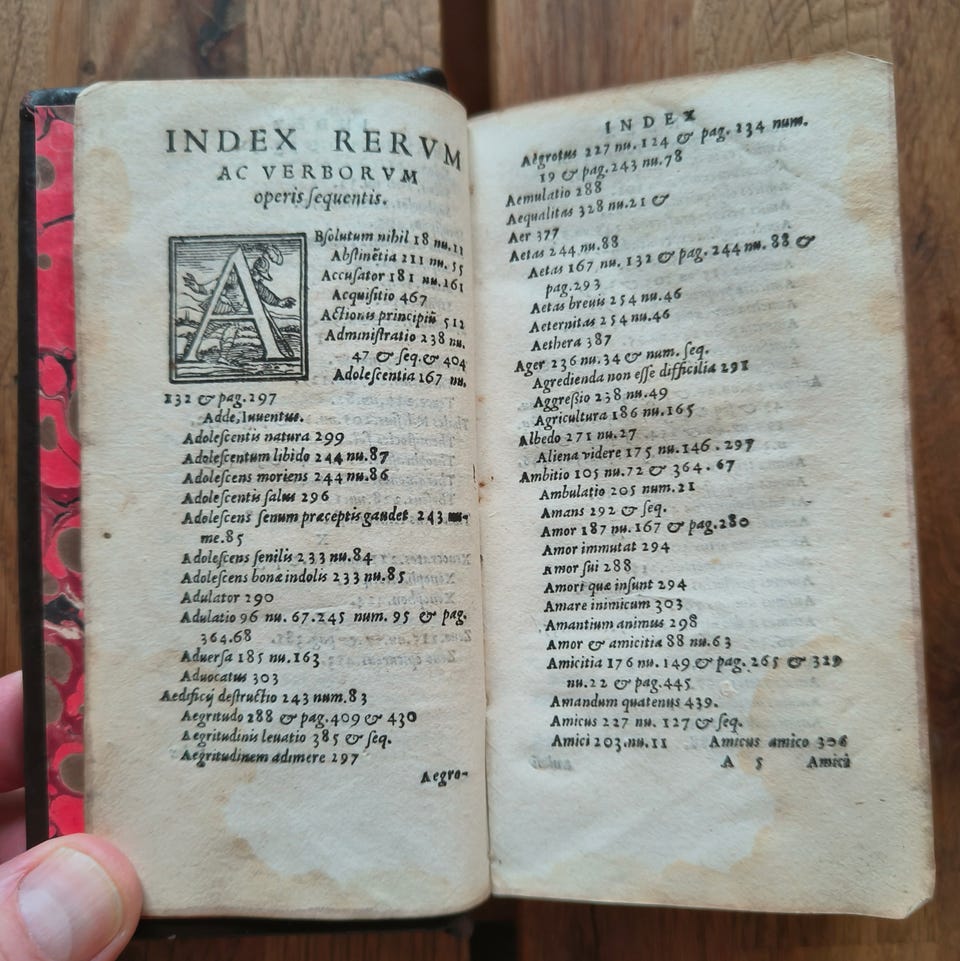 INDEX RERVM
AC VERBORVM
operis ſequentis.
ABſolutum nihil 18 nu.11
Abſtinẽtia 211 nu.55
Accuſator 181 nu.161
Acquiſitio 467
Actionis principiũ 512
Adminiſtratio 238 nu.
47 & ſeq.& 404
Adoleſcentia 167 nu.
132 & pag.297
Adde, Iuuentus.
Adoleſcentis natura 299
Adoleſcentum libido 244 nu.87
Adoleſcens moriens 244 nu.86
Adoleſcentis ſalus 296
Adoleſcens ſenum præceptis gaudet 243 nu-
me.85
Adoleſcens ſenilis 233 nu.84
Adoleſcens bonæ indolis 233 nu.85
Adulator 290
Adulatio 96 nu. 67.245 num. 95 & pag.
364.68
Aduerſa 185 nu.163
Aduocatus 303
Aedificij deſtructio 243 num.83
Aegritudo 288 & pag.409 & 430
Aegritudinis leuatio 385 & ſeq.
Aegritudinem adimere 297
Aegro-
INDEX
Aegrotus 227 nu.124 & pag. 234 num.
19 & pag.243 nu.78
Aemulatio 288
Aequalitas 328 nu.21 &
Aer 377
Aetas 244 nu.88
Aetas 167 nu. 132 & pag. 244 nu. 88 &
pag.293
Aetas breuis 254 nu.46
Aeternitas 254 nu.46
Aethera 387
Ager 236 nu.34 & num. ſeq.
Agredienda non eſſe difficilia 291
Aggreſſio 238 nu.49
Agricultura 186 nu.165
Albedo 271 nu.27
Aliena videre 175 nu.146 . 297
Ambitio 105 nu.72 & 364 . 67
Ambulatio 205 num.21
Amans 292 & ſeq.
Amor 187 nu.167 & pag.280
Amor immutat 294
Amor ſui 288
Amori quæ inſunt 294
Amare inimicum 303
Amantium animus 298
Amor & amicitia 88 nu.63
Amicitia 176 nu.149 & pag. 265 & 329
nu.22 & pag.445
Amandum quatenus 439.
Amicus 227 nu. 127 & ſeq.
Amici 203.nu.11 Amicus amico 306
A 5 Amici